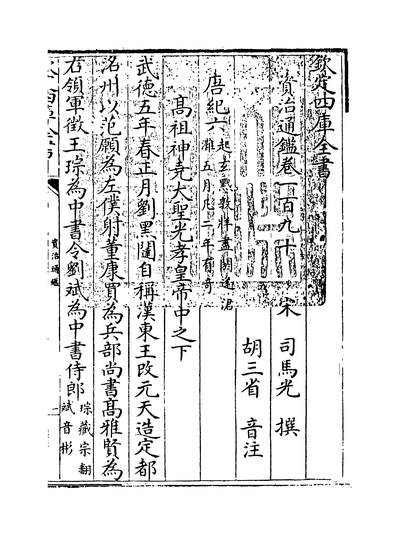 欽定四庫全書
資治通鑑卷一百九十
宋 司馬光 撰
胡三省 音注
唐紀六起玄黓敦牂盡閼逢涒灘五月凡二年有奇
高祖神堯大聖光孝皇帝中之下
武徳五年春正月劉黑闥自稱漢東王改元天造定都
洺州以范願為左僕射董康買為兵部尚書髙雅賢為
右領軍徵王琮為中書令劉斌為中書侍郎琮藏宗翻斌音彬
資治通鑑